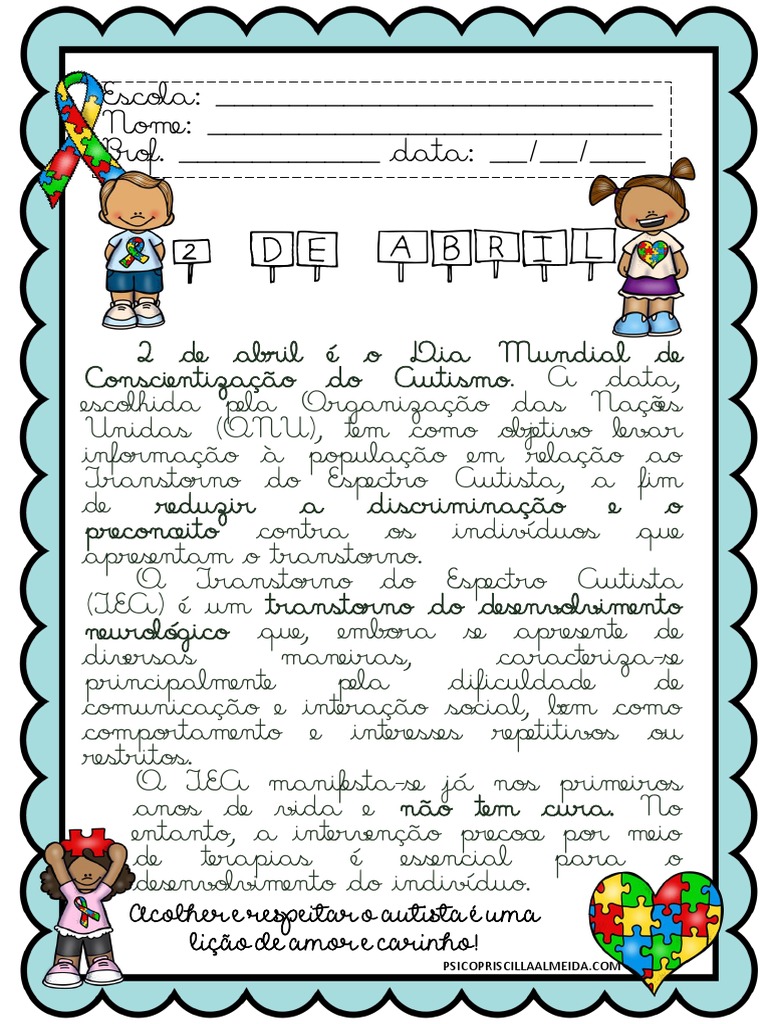 Escola: ___________________________
Nome: ____________________________
Prof. _____________ data: __/__/____
2 DE ABRIL
2 de abril é o Dia Mundial de
Conscientização do Autismo. A data,
escolhida pela Organização das Nações
Unidas (ONU), tem como objetivo levar
informação à população em relação ao
Transtorno do Espectro Autista, a fim
de reduzir a discriminação e o
preconceito contra os indivíduos que
apresentam o transtorno.
O Transtorno do Espectro Autista
(TEA) é um transtorno do desenvolvimento
neurológico que, embora se apresente de
diversas maneiras, caracteriza-se
principalmente pela dificuldade de
comunicação e interação social, bem como
comportamento e interesses repetitivos ou
restritos.
O TEA manifesta-se já nos primeiros
anos de vida e não tem cura. No
entanto, a intervenção precoce por meio
de terapias é essencial para o
desenvolvimento do indivíduo.
Acolher e respeitar o autista é uma
lição de amor e carinho!
PSICOPRISCILLAALMEIDA.COM